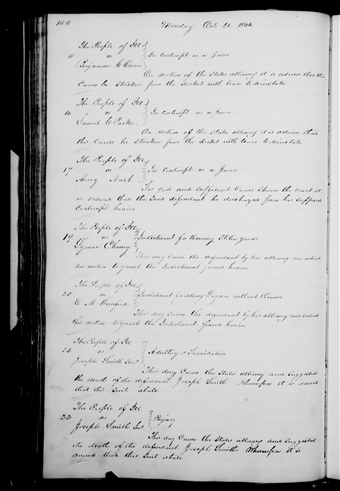 166
Monday Oct 21 1844
The People of Ill
15 vs In Contempt as a Juror
Benjamin
On motion of the States attorney it is ordered that this
Cause be Stricken from the docket with leave to Reinstate
The People of Ill
16 vs In Contempt as a Juror
Samuel Parker
On motion of the States attorney it is ordered that
this Cause be Stricken from the docket with leave to Reinstate
The People of Ill
17 vs In Contempt as a Juror
For good and Sufficient Cause Shown the Court it
is ordered that the Said defendant be discharged from his Supposed
Contempt herein
The People of Ill
19 vs Indictment for Receiving Stolen goods
This day Came the defendant by his attorney and enters
his motion to quash the Indictment found herein
The People of Ill
20 vs Indictment for selling Liquor without License
This day Came the defendant by his attorney and enters
his motion to quash the Indictment found herein
The People of Ill
21 vs Adultery & Fornication
Joseph Smith
This day Came the States attorney and Suggested
the death of the defendant Joseph Smith Whereupon it is ordered
that this Suit abate
The People of Ill
22 vs Perjury
Joseph Smith
This day Came the States attorney and Suggested
the death of the defendant Joseph Smith Whereupon it is
ordered that this Suit abate